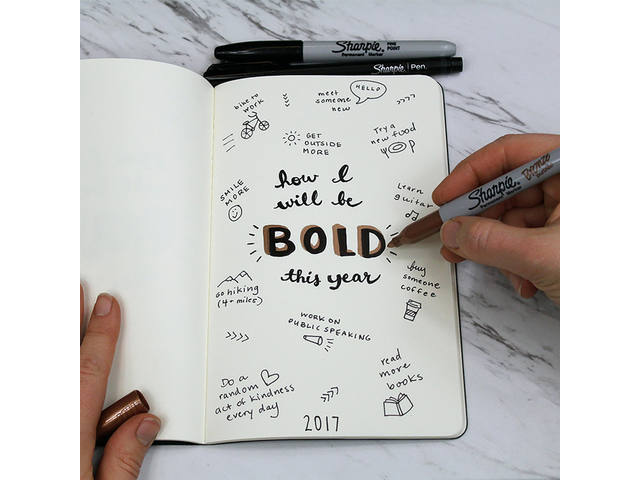 Sharpie FINE POINT
Permanent Marker
Sharpie. Pen.
bike to
work
meet
someone
new
HELLO
GET
OUTSIDE
MORE
Try a
new food
SMILE
MORE
how I
will be
BOLD
this year
Learn
guitar
Sharpie Bronze
Permanent Marker
go hiking
(4+ miles)
buy
someone
coffee
WORK ON
PUBLIC SPEAKING
Do a
random
act of kindness
every day
read
more
books
2017